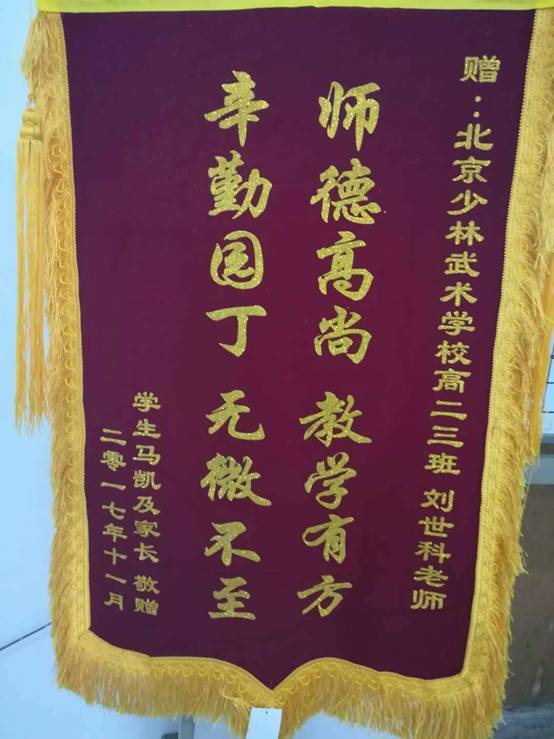 赠：北京少林武术学校高二三班 刘世科老师
师德高尚 教学有方
辛勤园丁 无微不至
学生马凯及家长 敬赠
二零一七年十一月